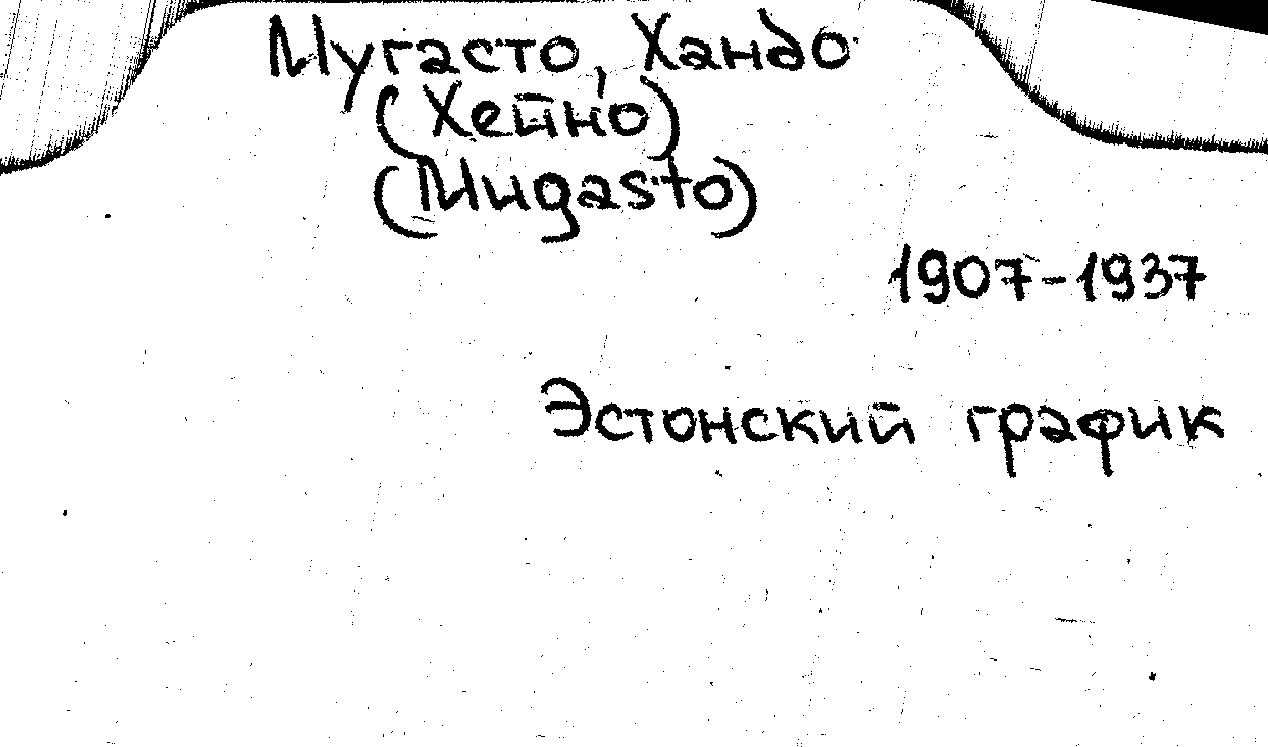 Мугасто, Хандо
(Хейно)
(Mugasto)
1907-1937
Эстонский график